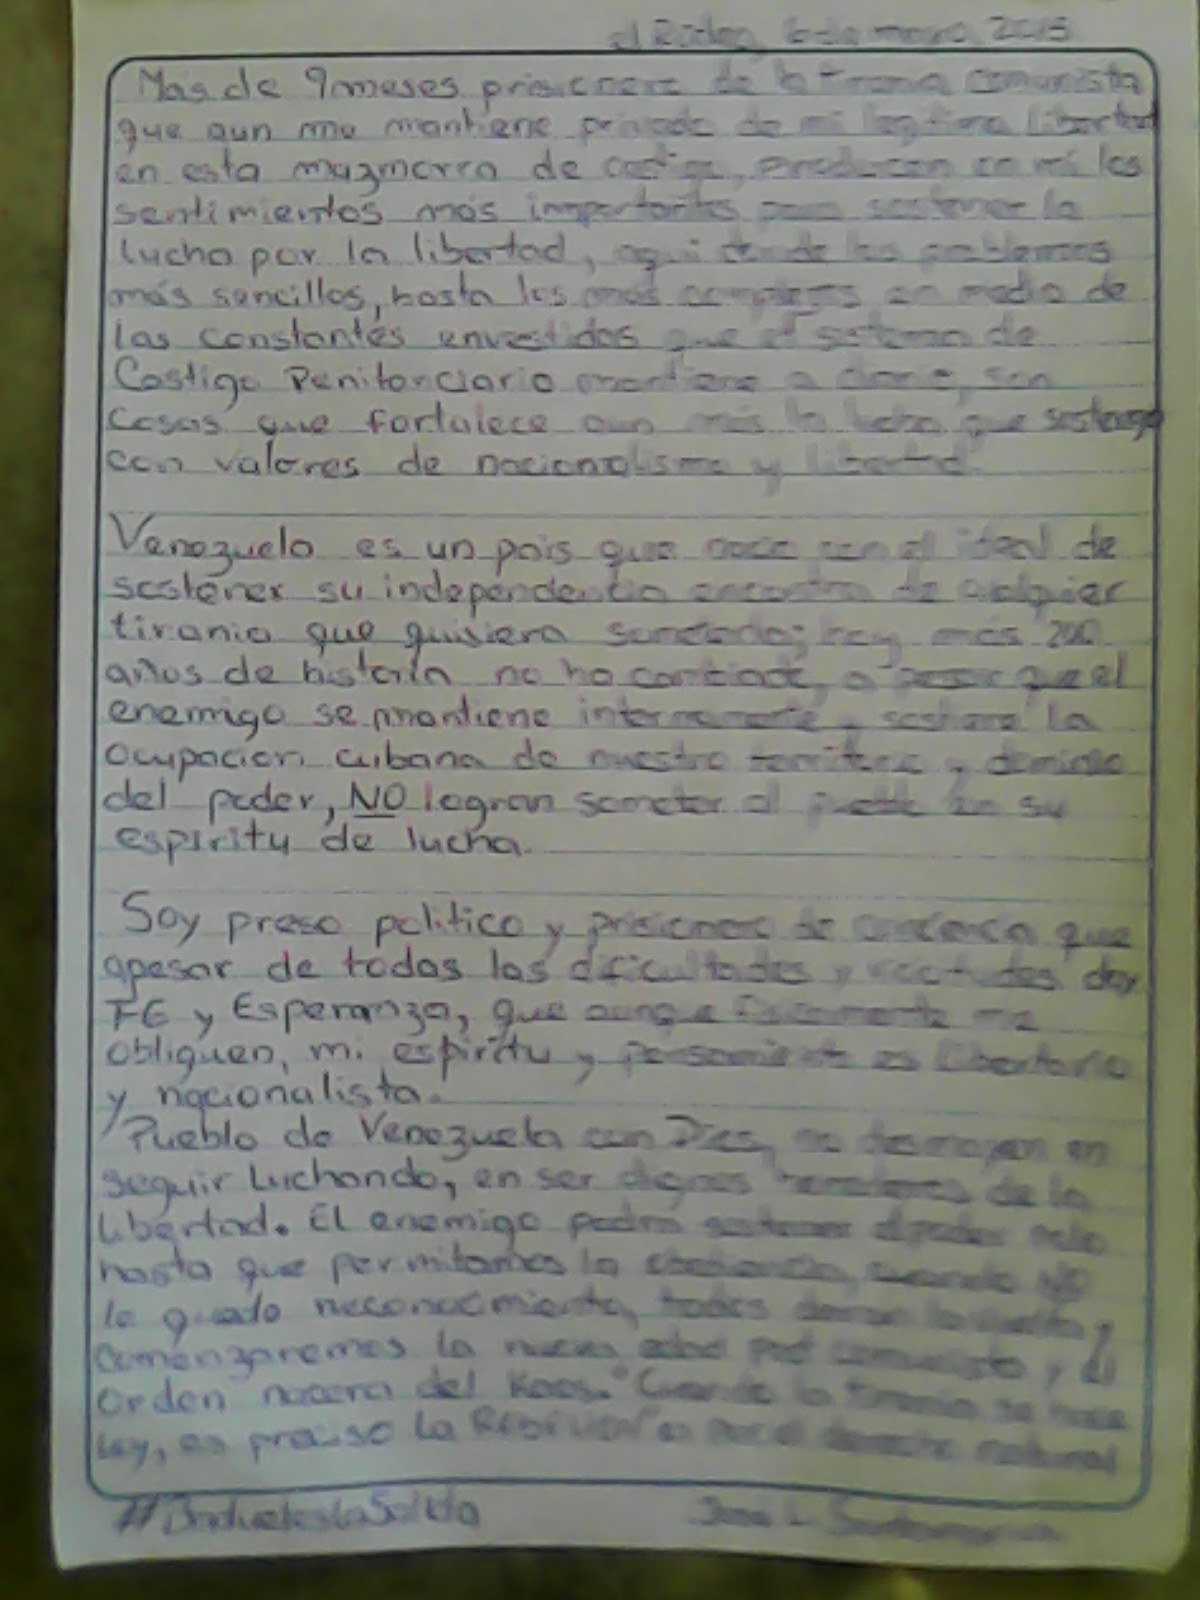 el Rodeo, 6 de marzo, 2015
Mas de 9 meses prisionero de la tirania comunista
que aun me mantiene privado de mi legitima libertad
en esta mazmorra de castigo, producen en mi los
sentimientos más importantes para sostener la
lucha por la libertad, aqui donde los problemas
más sencillos, hasta los más complejos en medio de
las constantes envestidas que el sistema de
Castigo Penitenciario mantiene a diario, son
cosas que fortalece aun más la lucha que sostengo
con valores de nacionalismo y libertad.
Venezuela es un pais que nace con el ideal de
sostener su independencia encontra de cualquier
tirania que quisiera someterla; hoy más 200
años de historia no ha cambiado, a pesar que el
enemigo se mantiene internamente y sostiene la
ocupacion cubana de nuestro territorio y dominio
del poder, NO logran someter al pueblo en su
espiritu de lucha.
Soy preso politico y prisionero de conciencia que
apesar de todas las dificultades y vicitudes doy
FE y Esperanza, que aunque fisicamente me
obliguen, mi espiritu y pensamiento es libertario
y nacionalista.
Pueblo de Venezuela con Dios, no desmayen en
seguir luchando, en ser dignos herederos de la
libertad. El enemigo podra sostener el poder solo
hasta que permitamos la obediencia, cuando NO
le quede reconocimiento, todos daran la vuelta y
comenzaremos la nueva post comunista y el
orden nacera del Kaos. "Cuando la tirania se hace
Ley, es preciso la Rebelion" es por el derecho natural
#